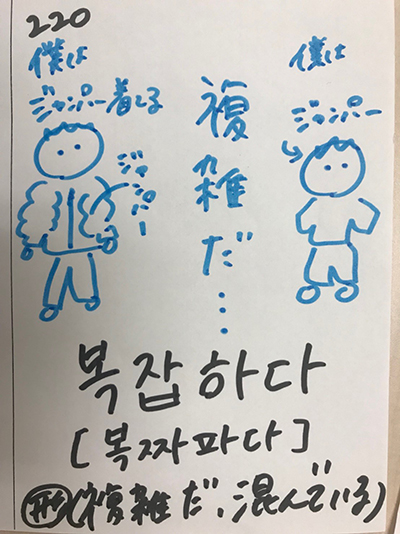 220
僕は
ジャンパー着てる
ジャンパー
複雑だ…
僕は
ジャンパー
복잡하다
[복짜파다]
形(複雑だ、混んでいる)